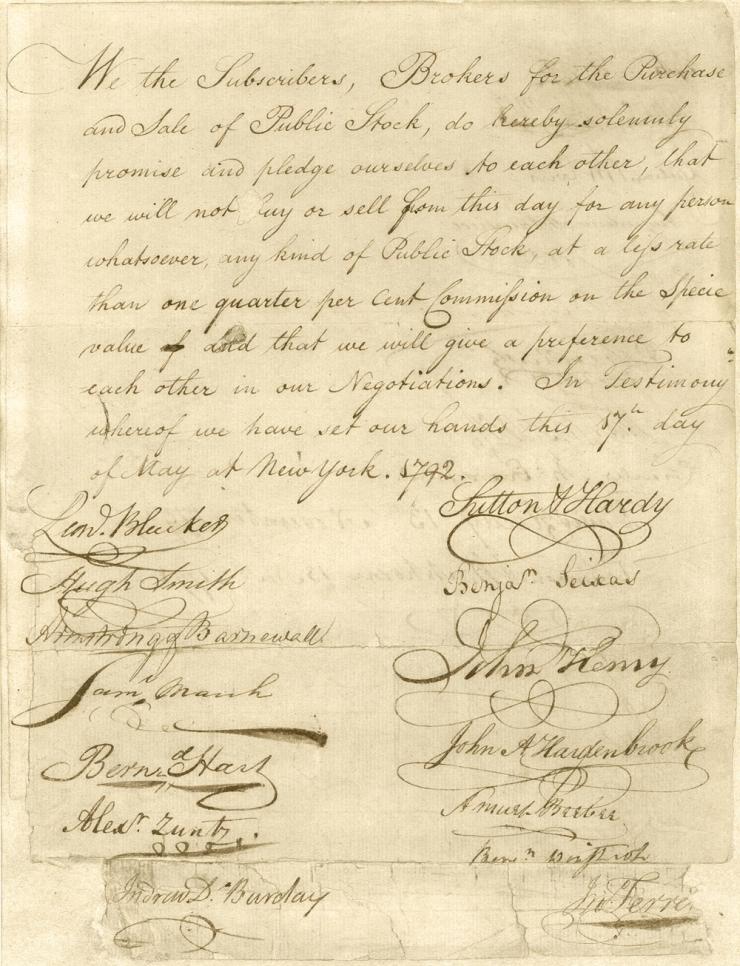 We the Subscribers, Brokers for the Purchase
and Sale of Public Stock, do hereby solemnly
promise and pledge ourselves to each other, that
we will not buy or sell from this day for any person
whatsoever, any kind of Public Stock, at a less rate
than one quarter per Cent Commission on the Specie
value of and that we will give a preference to
each other in our Negotiations. In Testimony
whereof we have set our hands this 17th. day
of May at New York. 1792.
Leod. Bleecker
Hugh Smith
Armstrong & Barnewall
Saml. March
Bernd. Hart
Alexr. Zuntz.
Andrew D. Barclay
Sutton & Hardy
Benjan. Seixas
John Henry
John A Hardenbrook
Amurt Beebee
Benn.
Jno Ferre